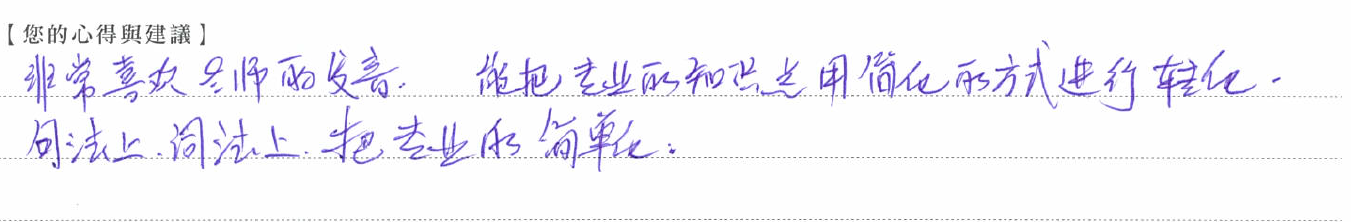 【您的心得與建議】
非常喜欢老师的发音. 能把专业的知识点用简化的方式进行转化.
句法上.词法上.把专业的简单化.